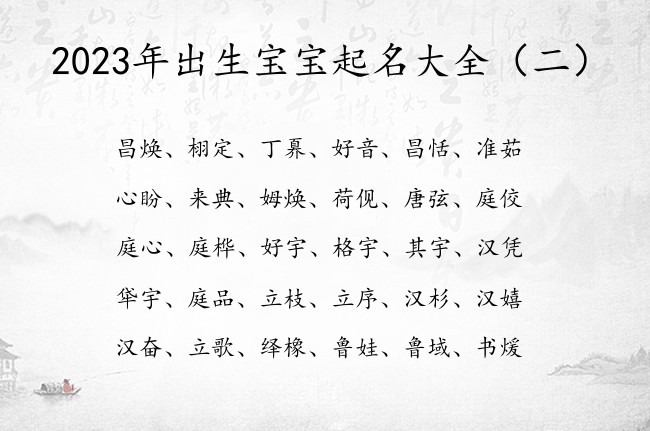 2023年出生宝宝起名大全（二）
昌焕、栩定、丁奡、好音、昌恬、准茹
心盼、来典、姆焕、荷伣、唐弦、庭佼
庭心、庭桦、好宇、格宇、其宇、汉凭
荜宇、庭品、立枝、立序、汉杉、汉嬉
汉奋、立歌、绎橡、鲁娃、鲁域、书煖